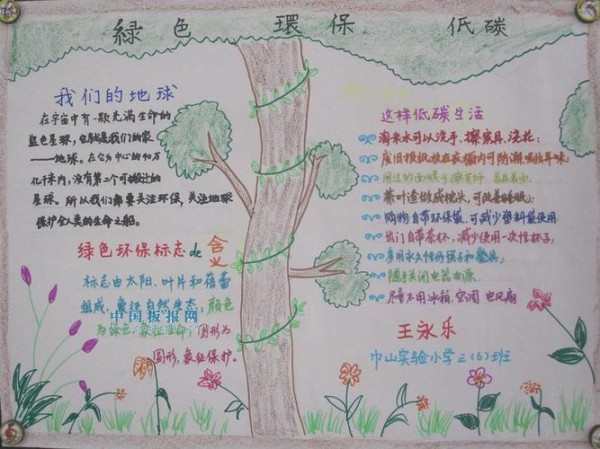 绿色 環保 低碳
我们的地球
在宇宙中有一颗充满生命的
蓝色星球，也就是我们的家
——地球。在它为中心的40万
亿千米内，没有第二个可
星球。所以我们都要关注环保，关注地球
保护全人类的生命之船。
绿色环保标志de含义
标志由太阳、叶片和蓓蕾
组成，象征自然生态；颜色
为绿色，象征生命；图形为
圆形，象征保护。
中国板报网
这样低碳生活
淘米水可以洗手、擦家具、浇花；
废旧报纸放在衣橱内可防潮、吸异味；
用过的面膜可擦首饰、家具表面；
茶叶渣做成枕头，可改善睡眠；
购物自带环保袋，可减少塑料量使用
出门自带茶杯，减少使用一次性杯子；
多用永久性的筷子和餐具；
随手关闭电器电源
尽量不用冰箱、空调、电风扇
王永乐
巾山实验小学三（6）班